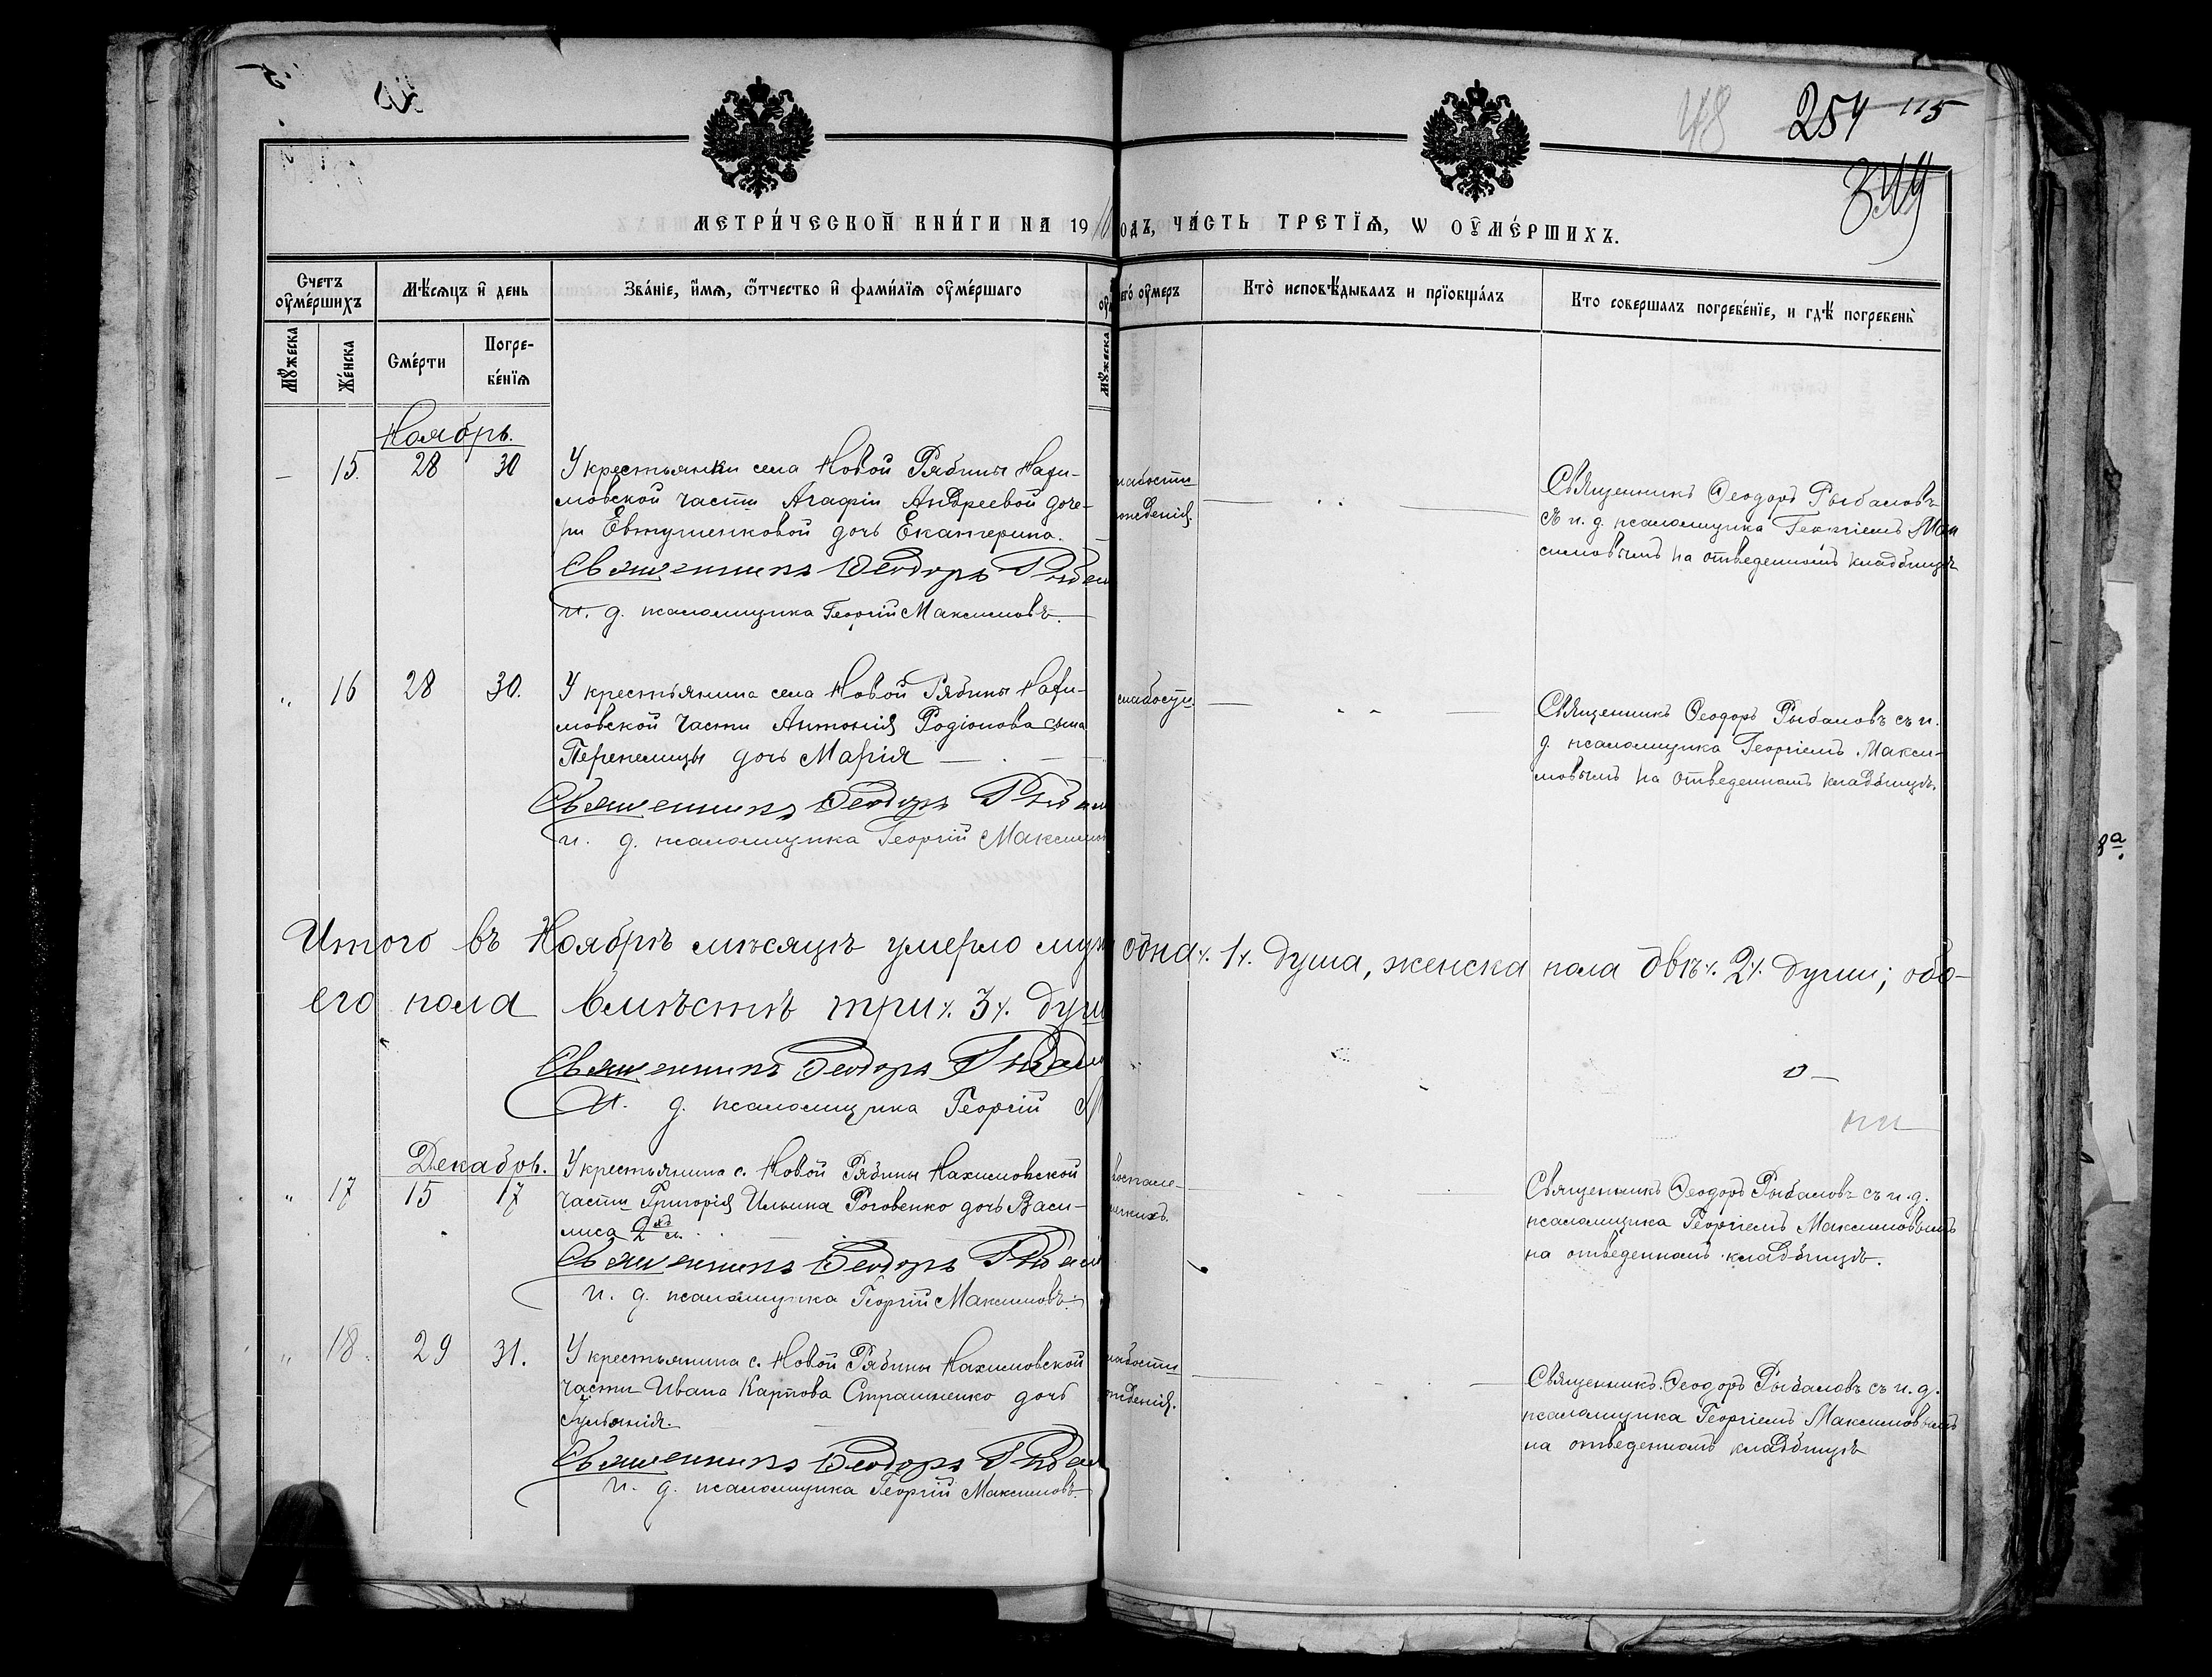 48 254 115
344
МЕТРИ́ЧЕСКОЙ КНИ́ГИ НА 19
ОДЪ, ЧА́СТЬ ТРЕТЇѦ, Ѡ ОУМЕ́РШИХЪ.
Счетъ оуме́ршихъ
Мѣ́сяцъ и҆ день
Зва́нїе, и҆́мѧ, ѻ҆́тчество и҆ фами́лїѧ оуме́ршаго
его̀ оумеръ
Кто̀ исповѣ́дывалъ и прїобща́лъ
Кто совершалъ погребе́нїе, и гдѣ̀ погребены̀
Му́жеска
Же́нска
Сме́рти
Погре-
бе́нїѧ
Му́жеска
Ноябрь.
— 15. 28 30 У крестьянки села Новой Рябины Нахи-
мовской части Агафіи Андреевой доче-
ри Евтушенковой дочь Екатерина.
Священникъ Ѳеодоръ
и. д. псаломщика Георгій Максимовъ.
Священникъ Ѳеодоръ Рыбаловъ
съ и. д. псаломщика Георгіемъ Мак
симовымъ на отведенномъ кладбищѣ
" 16 28 30. У крестьянина села Новой Рябины Нахи-
мовской части Антонія Родіонова сына
Перепелицы дочь Марія
Священникъ Ѳеодоръ
и. д. псаломщика Георгій
Священникъ Ѳеодоръ Рыбаловъ съ и.
д. псаломщика Георгіемъ Макси-
мовымъ на отведенномъ кладбищѣ.
Итого въ Ноябрѣ мѣсяцѣ умерло муж одна ٪ 1 ٪ душа, женска пола двѣ ٪ 2 ٪ души; обо-
его пола вмѣстѣ три ٪ 3 ٪ душ
Священникъ Ѳеодоръ
И. д. псаломщика Георгій М
Декабрь.
" 17 15 17 У крестьянина с. Новой Рябины Нахимовской
части Григорія Ильина Роговенко дочь Васи-
лиса 2хъ л.
Священникъ Ѳеодоръ
и. д. псаломщика Георгій Максимовъ.
воспале-
легкихъ.
Священникъ Ѳеодоръ Рыбаловъ съ и. д.
псаломщика Георгіемъ Максимовымъ
на отведенномъ кладбищѣ.
" 18. 29 31. У крестьянина с. Новой Рябины Нахимовской
части Ивана Карпова Страшненко дочь
Іуліанія.
Священникъ Ѳеодоръ
и. д. псаломщика Георгій Максимовъ.
Священникъ Ѳеодоръ Рыбаловъ съ и. д.
псаломщика Георгіемъ Максимовымъ
на отведенномъ кладбищѣ